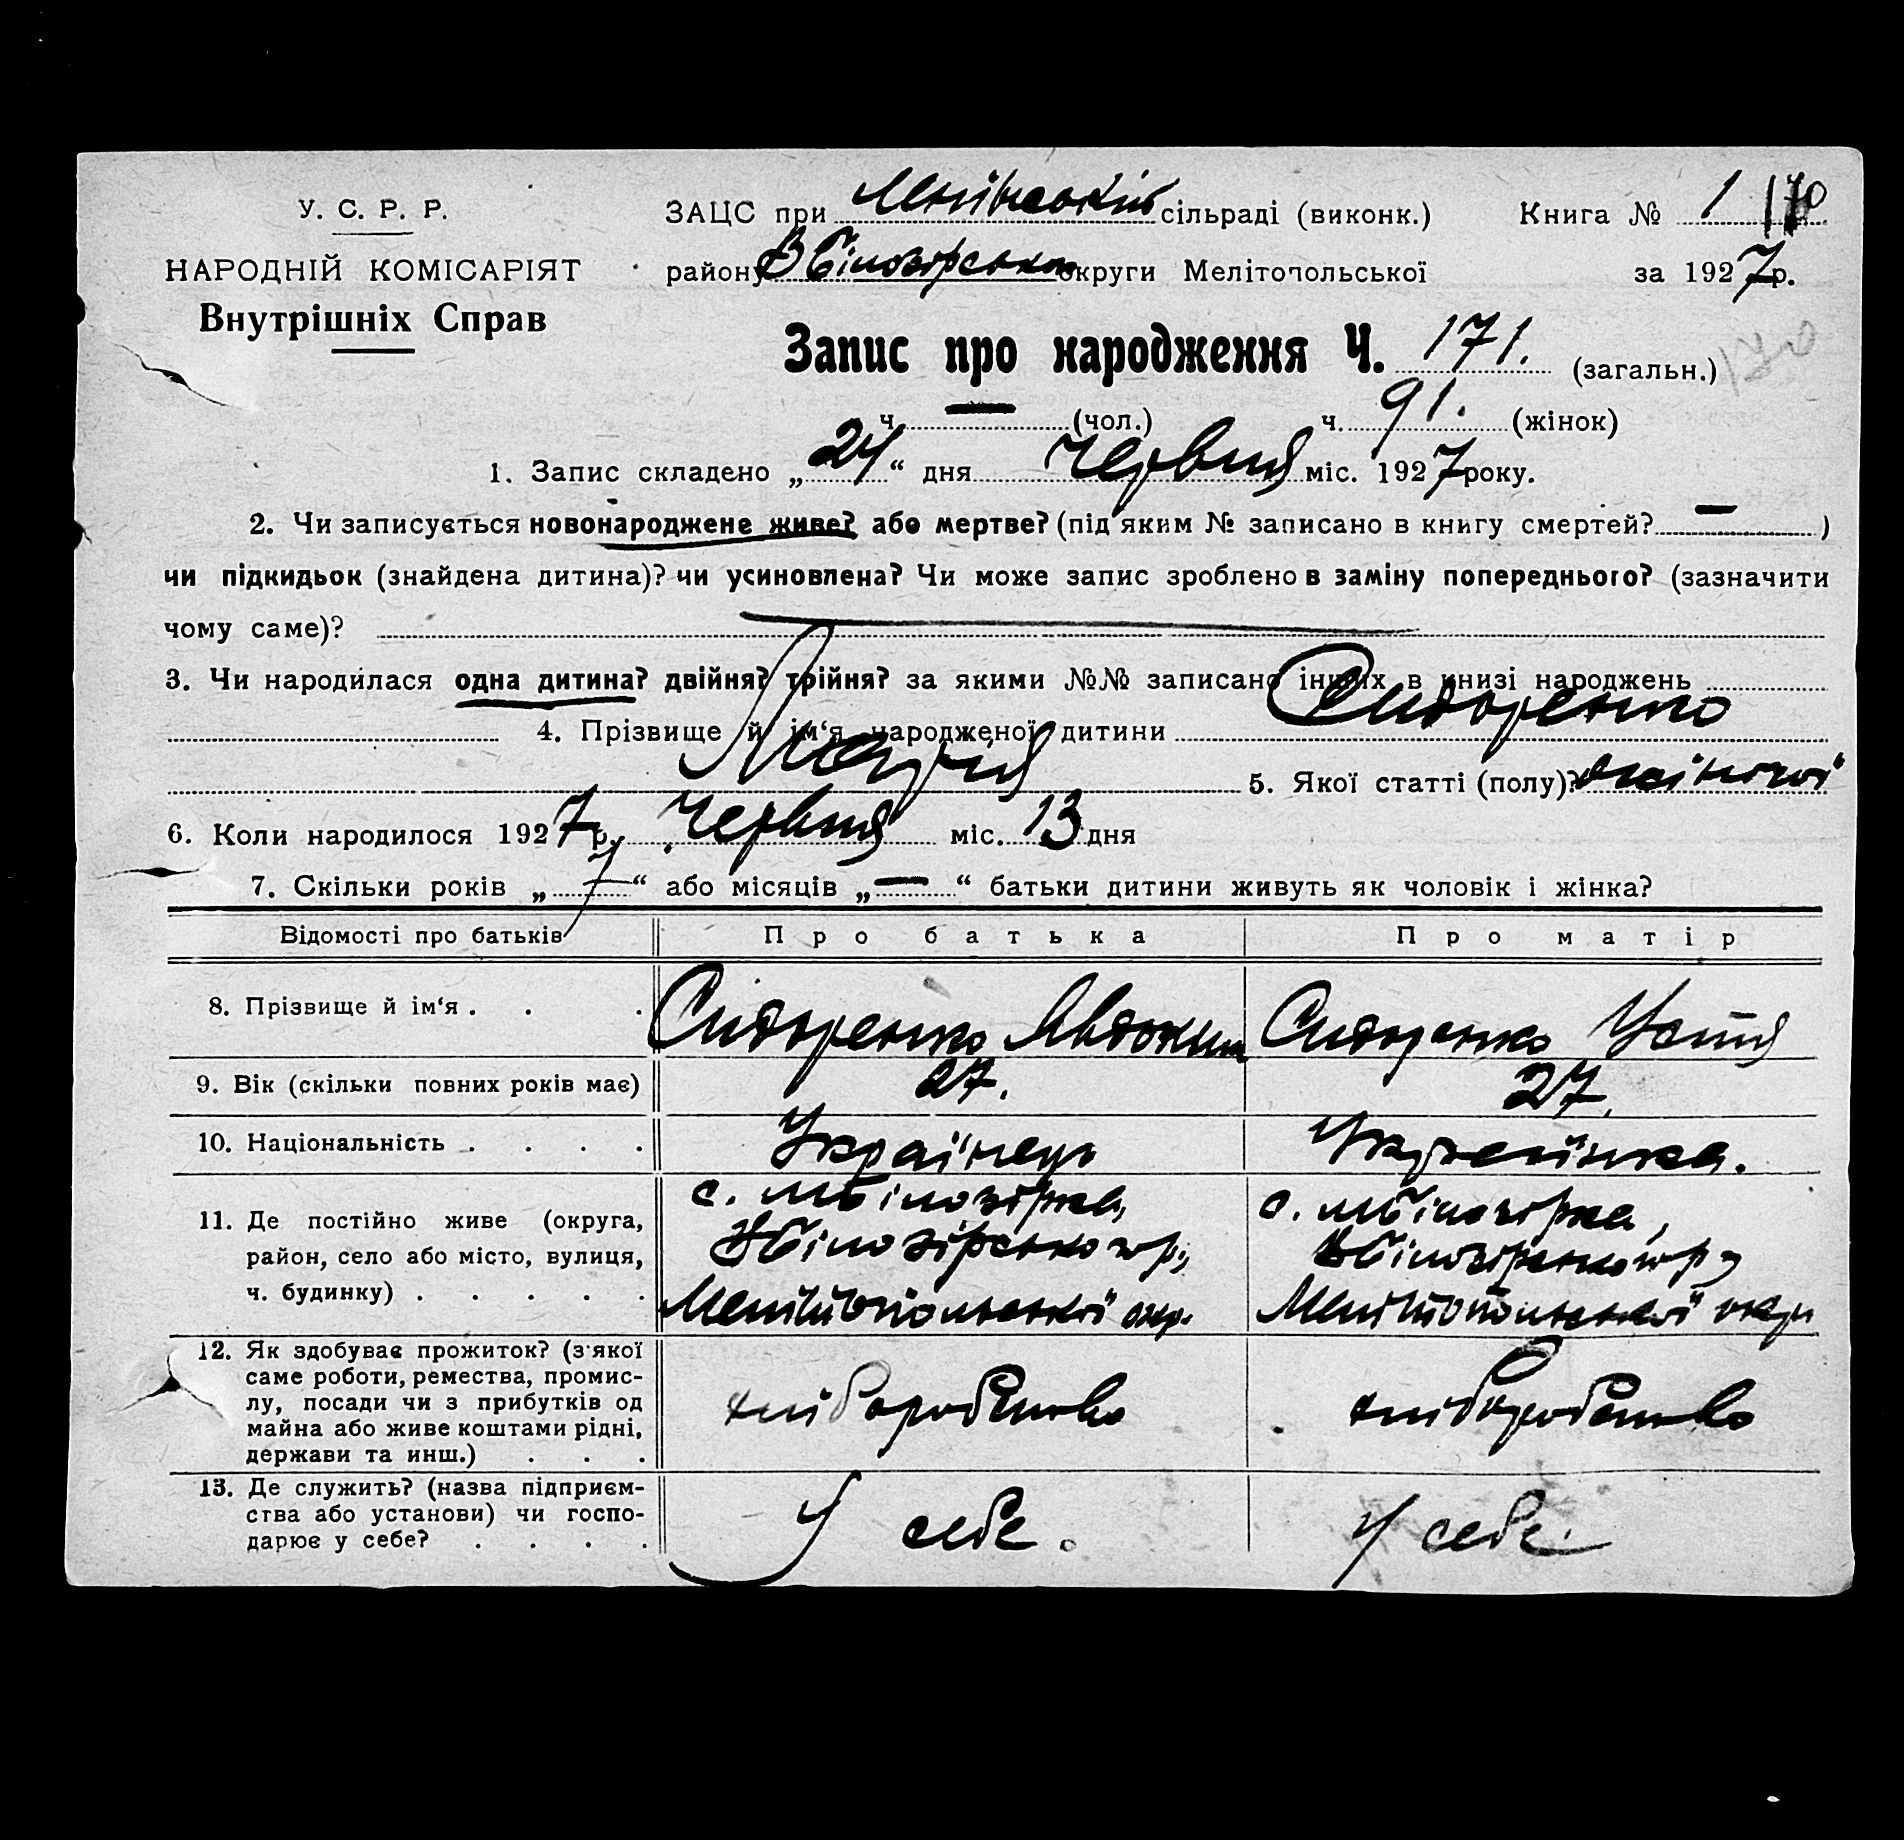 У. С. Р. Р.
НАРОДНІЙ КОМІСАРІЯТ
Внутрішніх Справ
ЗАЦС при сільраді (виконк.) Книга № 1 170
району В Білозірського округи Мелітопольської за 1927 р.
Запис про народження Ч. 171. (загальн.) 170
ч. — (чол.) ч. 91. (жінок)
1. Запис складено „24“ дня Червня міс. 1927 року.
2. Чи записується новонароджене живе? або мертве? (під яким № записано в книгу смертей? — )
чи підкидьок (знайдена дитина)? чи усиновлена? Чи може запис зроблено в заміну попереднього? (зазначити
чому саме)?
3. Чи народилася одна дитина? двійня? трійня? за якими №№ записано інших в книзі народжень
4. Прізвище й ім‘я народженої дитини Сидоренко
Марія 5. Якої статті (полу)? жіночої
6. Коли народилося 1927 р. Червня міс. 13 дня
7. Скільки років „7“ або місяців „—“ батьки дитини живуть як чоловік і жінка?
Відомості про батьків Про батька Про матір
8. Прізвище й ім‘я . . . Сидоренко Явдоким Сидоренко Устя
9. Вік (скільки повних років має) 27. 27.
10. Національність . . . . Українець Українка.
11. Де постійно живе (округа,
район, село або місто, вулиця,
ч. будинку) . . . . .
с. мБілозірка,
ВБілозірського р.,
Мелітопольської окр.
с. мБілозірка,
ВБілозірського р
Мелітопольської окр
12. Як здобуває прожиток? (з'якої
саме роботи, ремества, промис-
лу, посади чи з прибутків од
майна або живе коштами рідні,
держави та инш.) . . .
хліборобство
хліборобство
13. Де служить? (назва підприєм-
ства або установи) чи госпо-
дарює у себе? . . . .
У себе.
У себе.